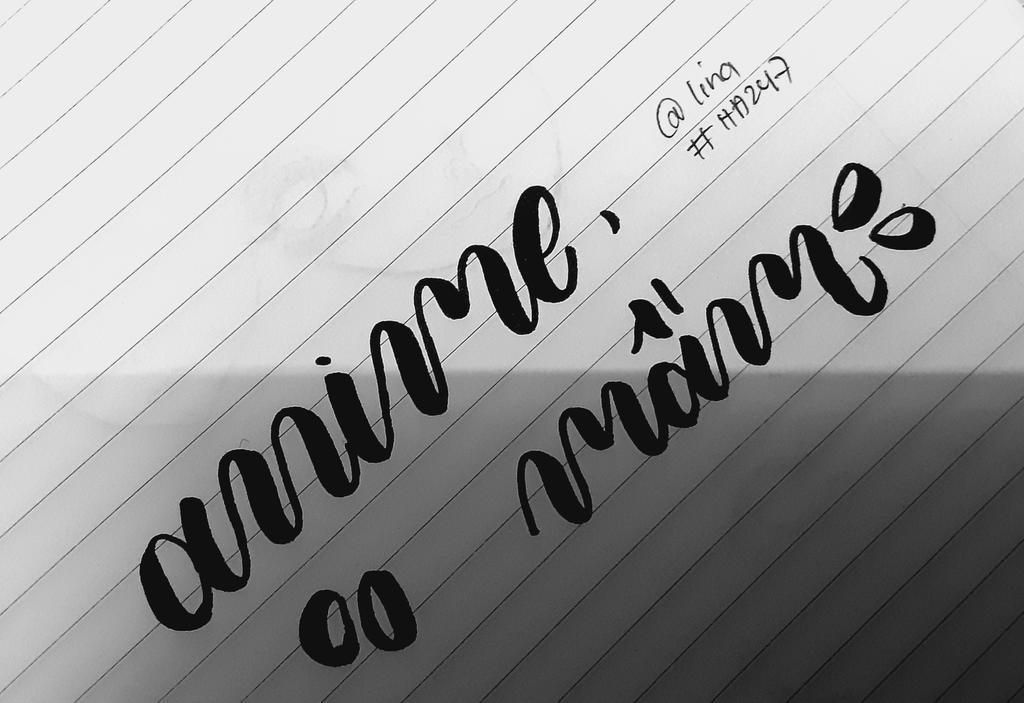 @lina
#HA247
anime,
mầm